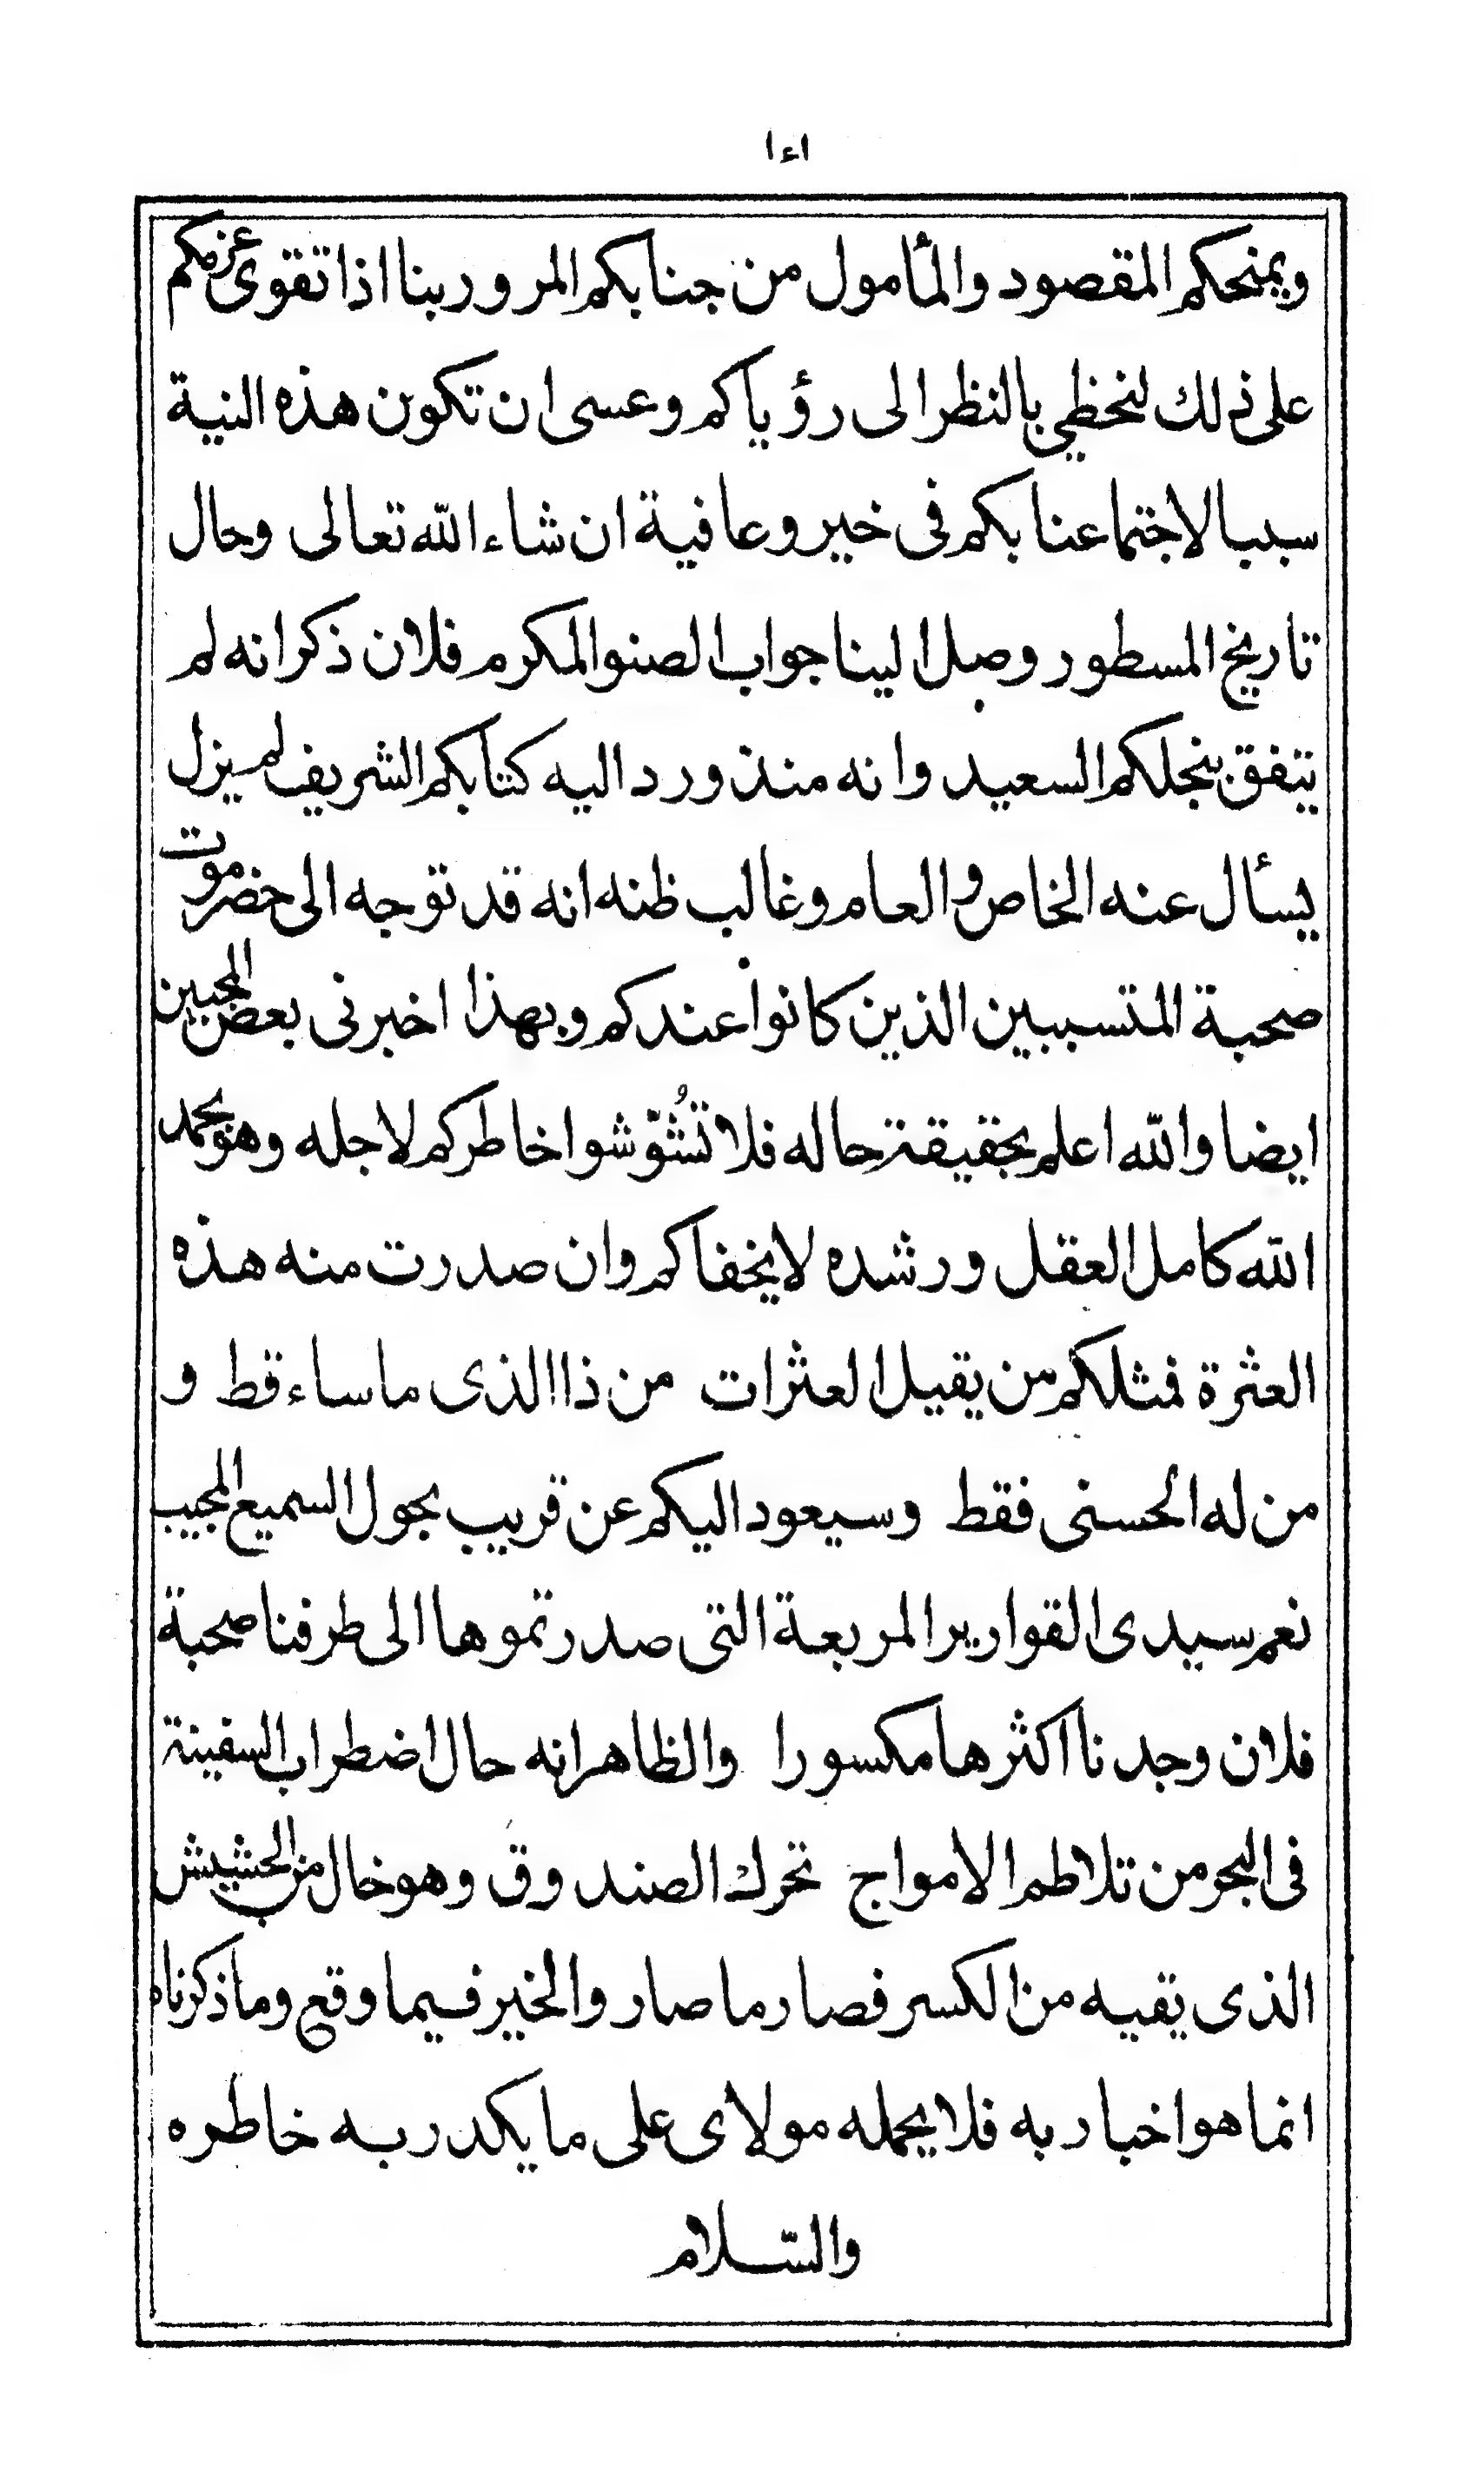 ١٤١
ويمنحكم المقصود والمأمول من جنابكم المرور بنا اذا تقوى عزمكم
على ذلك لنحظي بالنظر الى رؤياكم وعسى ان تكون هذه النية
سببا لاجتماعنا بكم فى خير وعافية ان شاء الله تعالى وحال
تاريخ المسطور وصل الينا جواب الصنو المكرم فلان ذكر انه لم
يتفق بنجلكم السعيد وانه منذ ورد اليه كتابكم الشريف لم يزل
يسأل عنه الخاص والعام وغالب ظنه انه قد توجه الى حضرموت
صحبة المتسببين الذين كانوا عندكم وبهذا اخبرنى بعض المحبين
ايضا والله اعلم بحقيقة حاله فلا تُشوّشوا خاطركم لاجله وهو بحمد
الله كامل العقل ورشده لا يخفاكم وان صدرت منه هذه
العثرة فمثلكم من يقيل العثرات من ذا الذى ما ساء قط و
من له الحسنى فقط وسيعود اليكم عن قريب بحول السميع المجيب
نعم سيدى القوارير المربعة التى صدرتموها الى طرفنا صحبة
فلان وجدنا اكثرها مكسورا والظاهر انه حال اضطراب السفينة
فى البحر من تلاطم الامواج تحرك الصندوق وهو خال من الحشيش
الذى يقيه من الكسر فصار ما صار والخير فيما وقع وما ذكرناه
انما هو اخبار به فلا يحمله مولاى على ما يكدر به خاطره
والسّلام